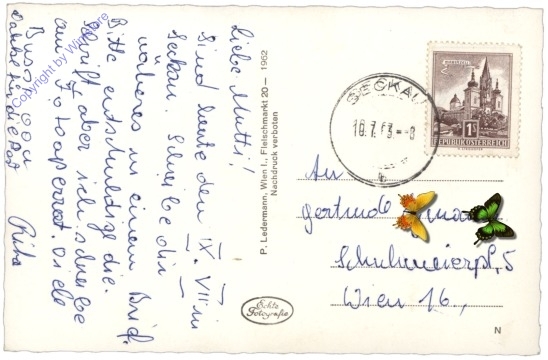 Liebe Mutti!
Sind heute den IX. VIII in
Seckau. Schreibe dir
näheres in einem Brief.
Bitte entschuldige die
Schrift aber ich schreibe
am Fotoapperrat. Viele
Bussi von
Danke für die Post
Copyright by
P. Ledermann, Wien I., Fleischmarkt 20 — 1962
Nachdruck verboten
Echte
Fotografie
SECKAU
REPUBLIK ÖSTERREICH
An
Gertrude
Schuhmeierpl. 5
Wien 16.,
N